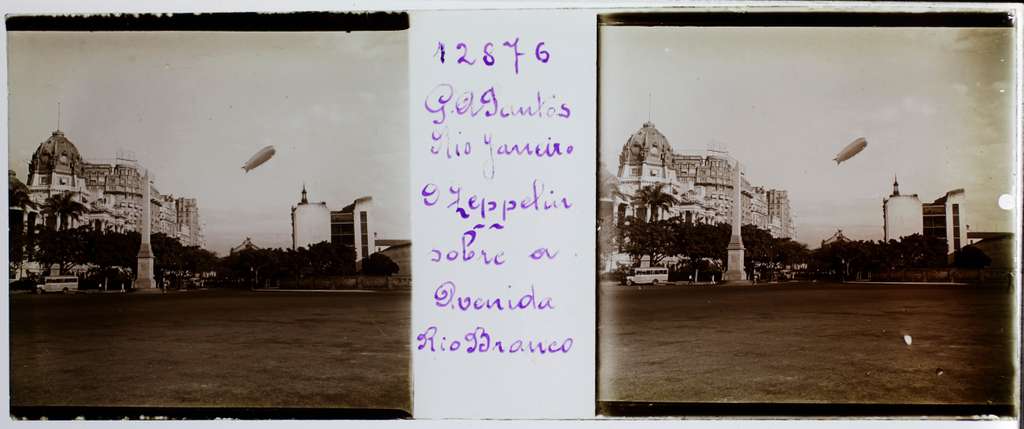 12876
G.A Santos
Rio Janeiro
O Zeppelin
sobre a
Avenida
Rio Branco